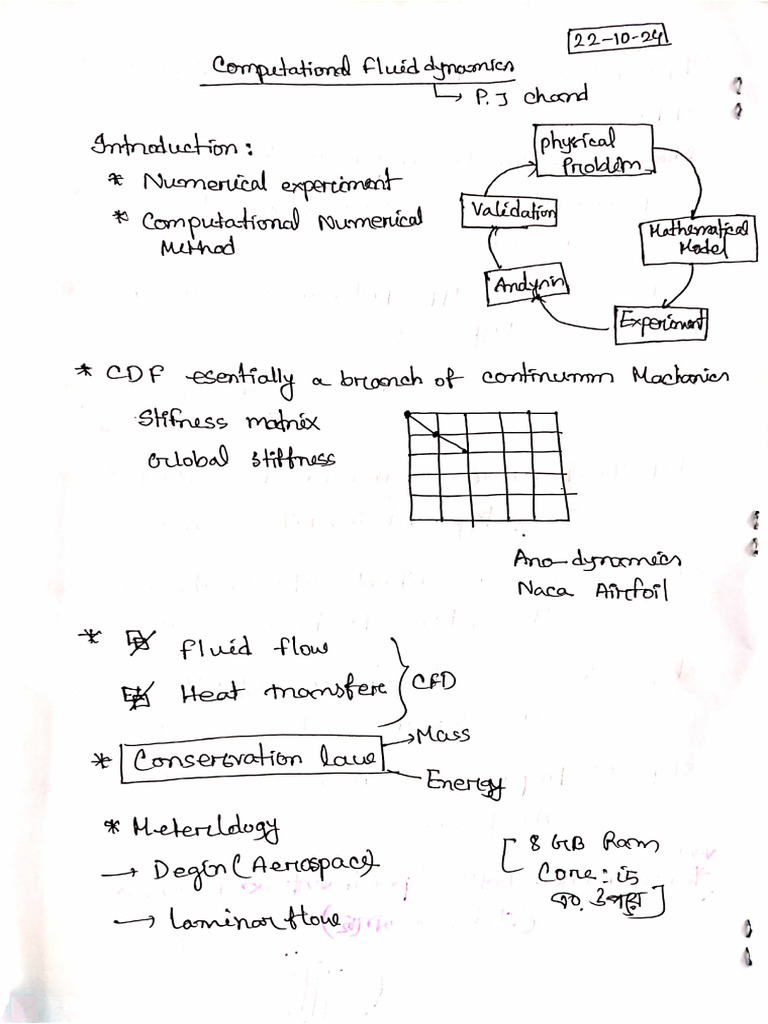 22-10-24
Computational Fluid dynamics
P.J chand
Introduction:
* Numerical experiment
* Computational Numerical
Method
Physical
Problem
Mathematical
Model
Experiment
Validation
* CDF esentially a branch of continumm Mechanics
Stifness matrix
Global stiffness
dynamics
Naca Airfoil
* Fluid flow
Heat transfere
CFD
* Conservation lawe
Mass
Energy
*
→ Degin (Aerospace)
→ laminar flowe
[8 GB Ram
Core: i5
বা. উপরে]